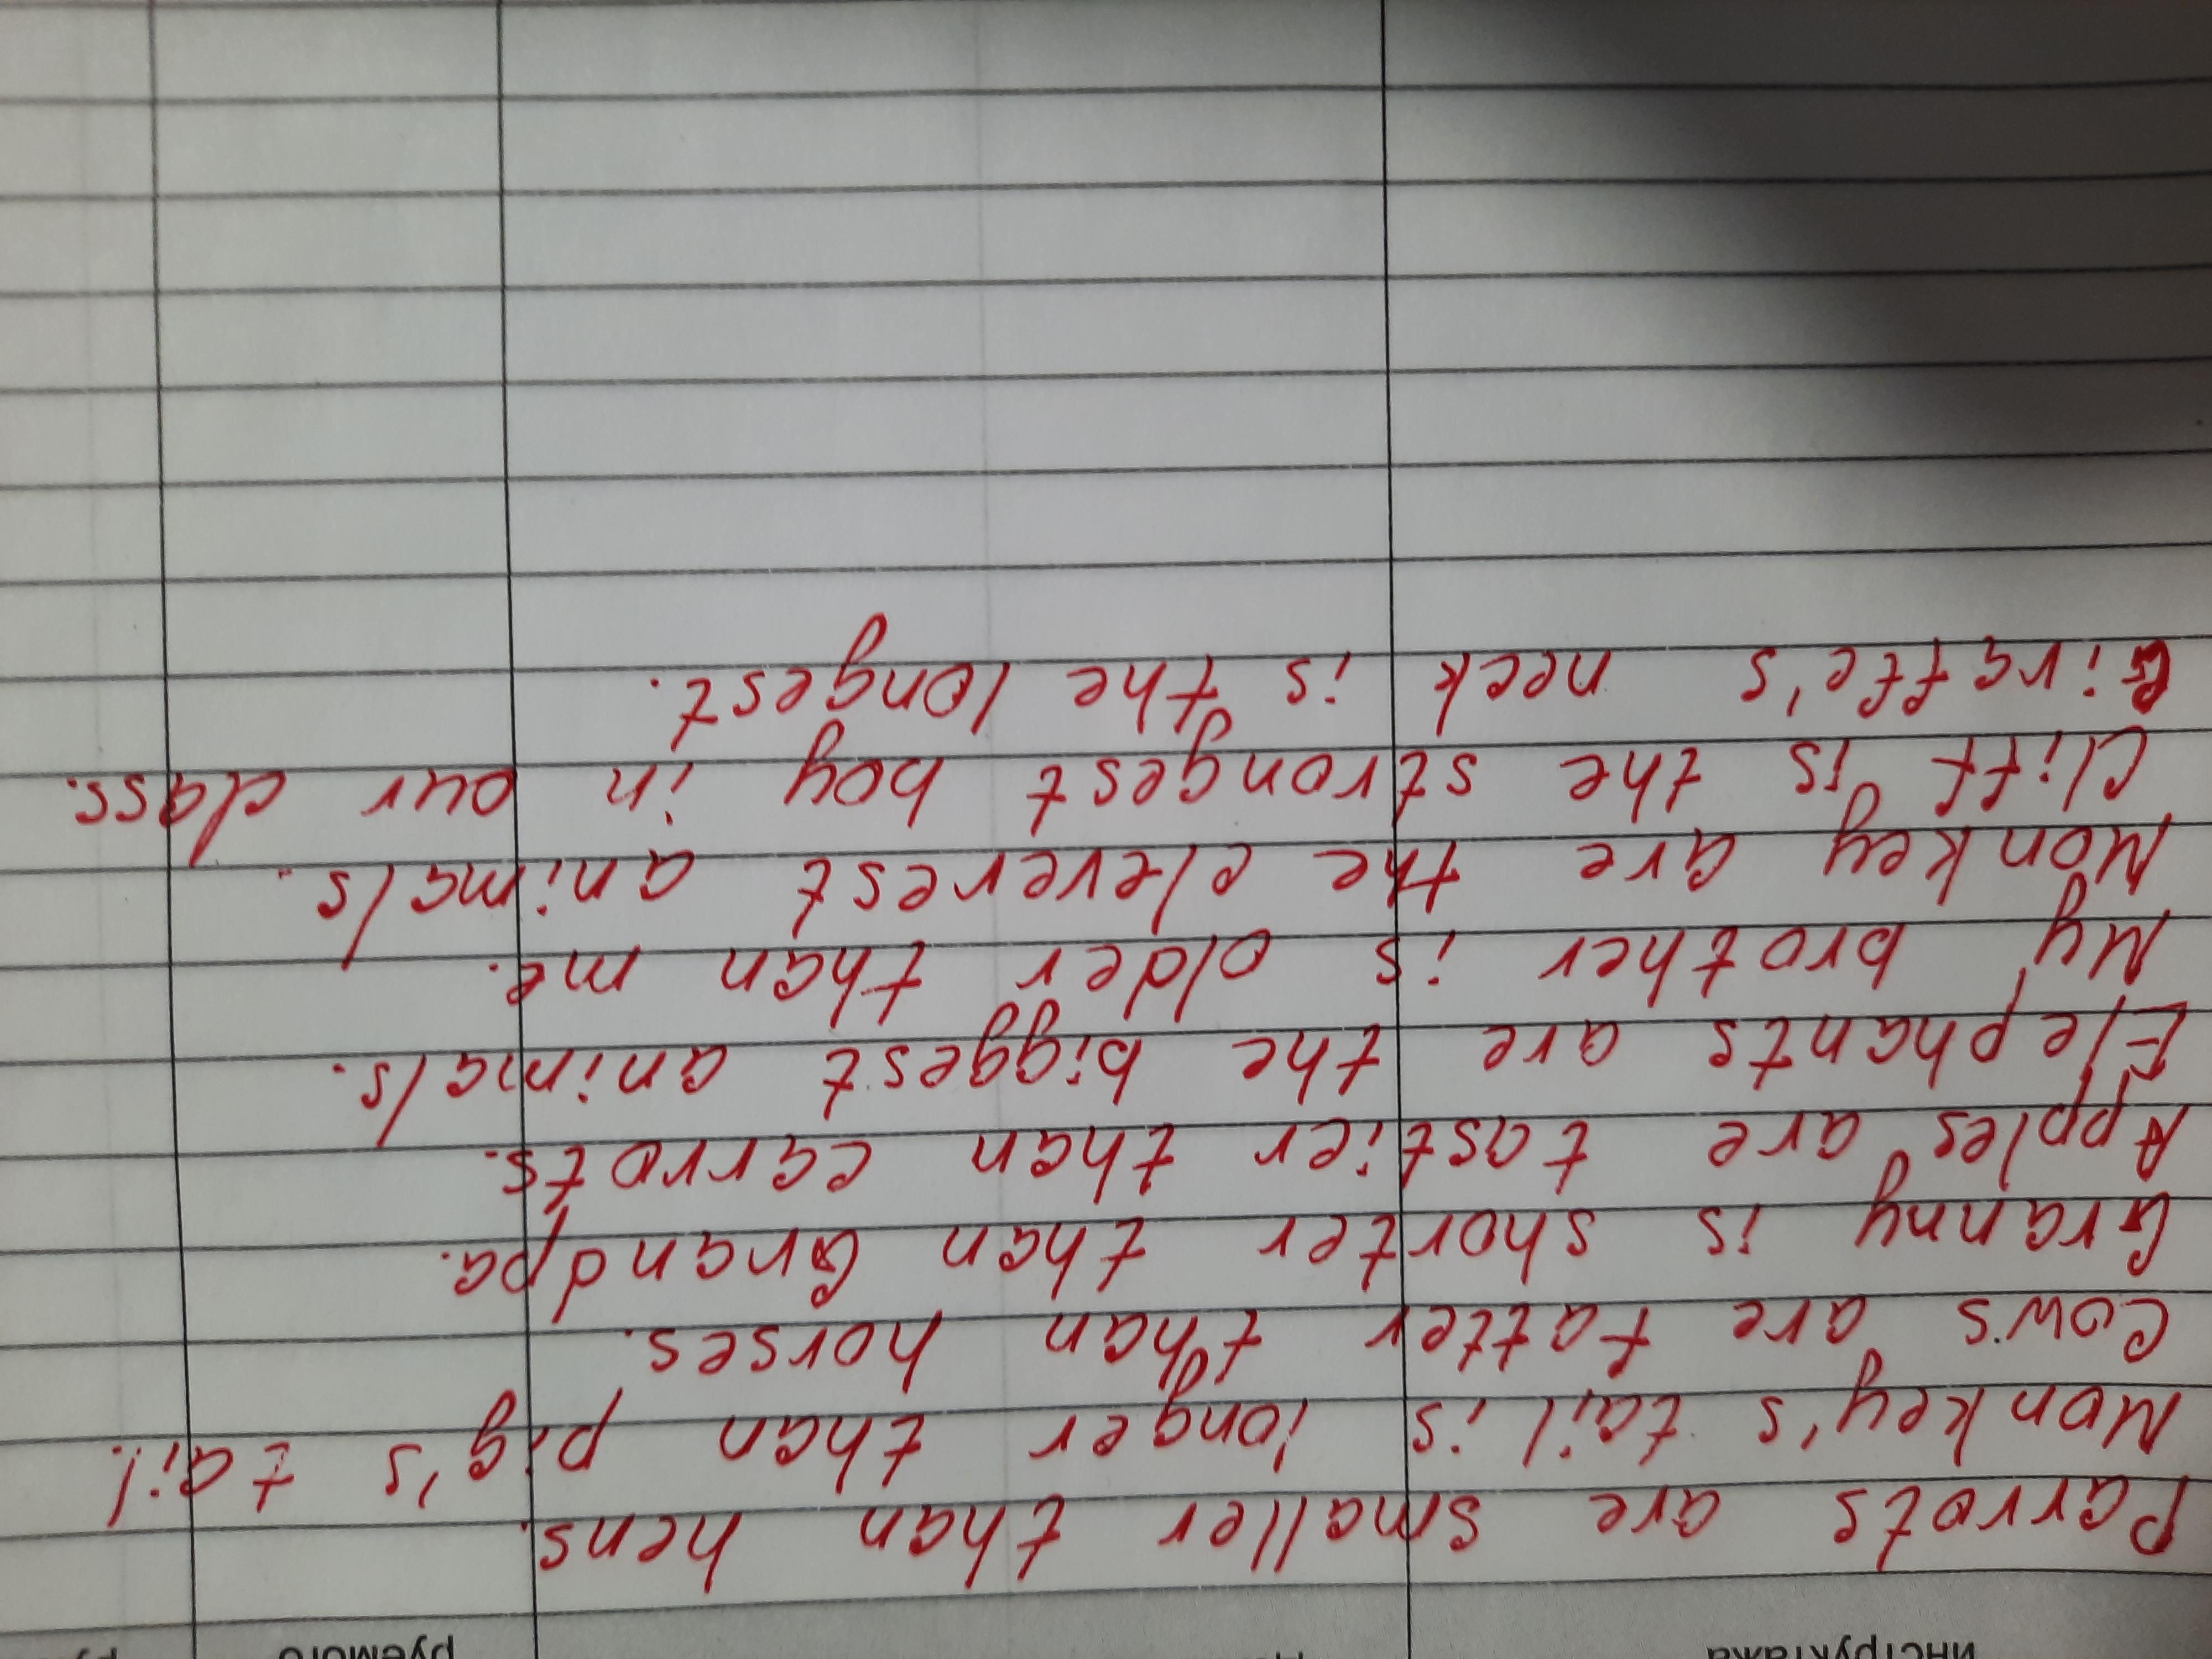 инструктажа руемого
Parrots are smaller than hens.
Monkey's tail is longer than pig's tail.
Cows are fatter than horses.
Granny is shorter than Grandpa.
Apples are tastier than carrots.
Elephants are the biggest animals.
My brother is older than me.
Monkey are the cleverest animals.
Cliff is the strongest boy in our class.
Giraffe's neck is the longest.